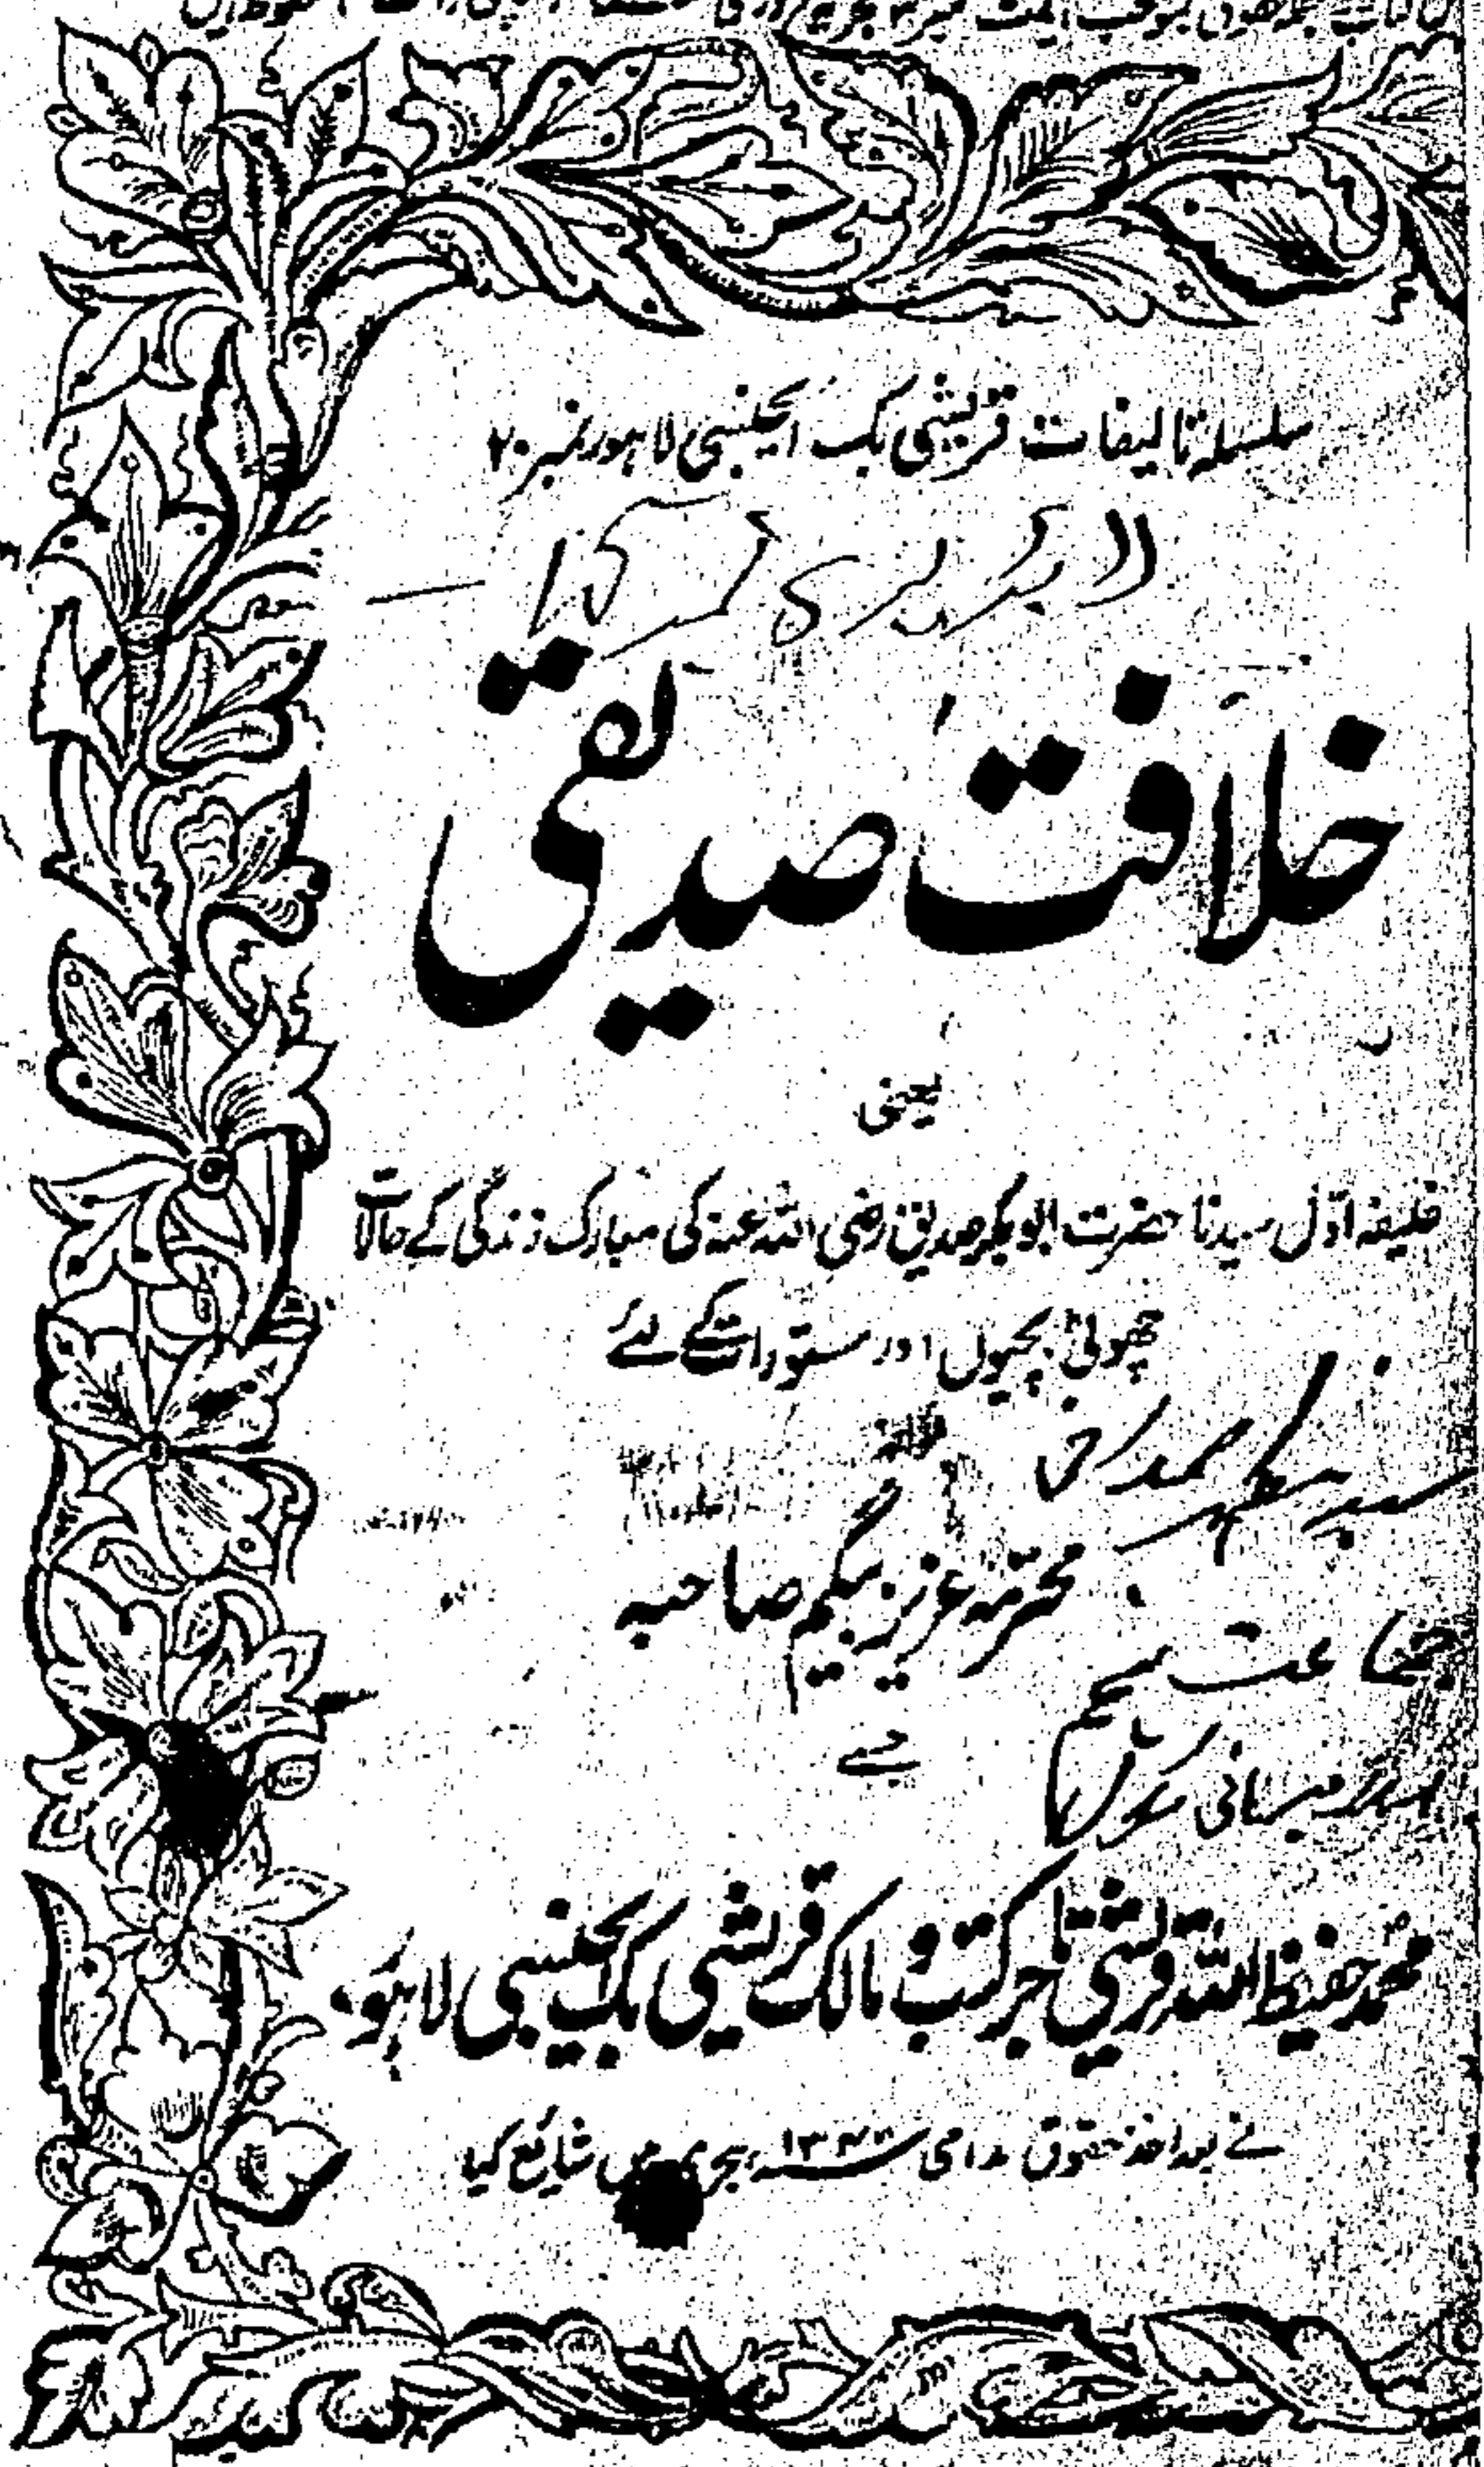 سلسلہ تالیفات قریشی بک ایجنسی لاہور نمبر ۲۰
لائبریری نمبر
خلافت صدیقی
یعنی
خلیفہ اوّل سیدنا حضرت ابوبکر صدیق رضی اللہ عنہ کی مبارک زندگی کے حالات
چھوٹی بچیوں اور مستورات کے لئے
مؤلفہ
محترمہ عزیز بیگم صاحبہ
جماعت
سکول
جسے
محمد حفیظ اللہ قریشی تاجر کتب و مالک قریشی بک ایجنسی لاہور
نے بعد اخذ حقوق دوامی ہجری میں شائع کیا